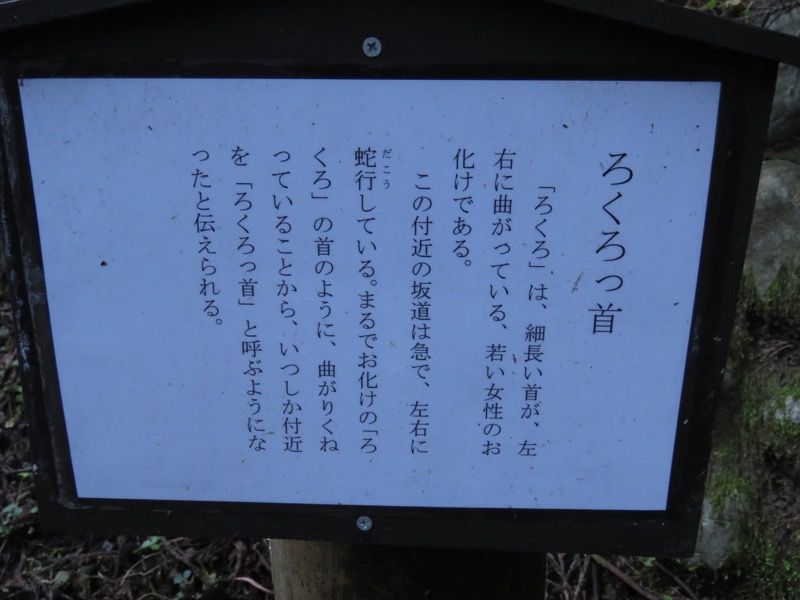 ろくろっ首
「ろくろ」は、細長い首が、左
右に曲がっている、若い女性のお
化けである。
この付近の坂道は急で、左右に
だこう
蛇行している。まるでお化けの「ろ
くろ」の首のように、曲がりくね
っていることから、いつしか付近
を「ろくろっ首」と呼ぶようにな
ったと伝えられる。